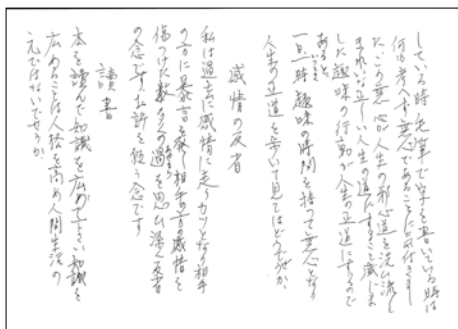 している時毛筆で字を書いている時は
何も考へず無心であることに気付きまし
たこの無心が人生の邪心道を洗ひ流し
きれいな正しい人生の道にすること感じま
した趣味の行動が人生の正道にするので
ある
一旦一時趣味の時間を持って無心となり
人生の正道を歩いて見てはどうでせうか、
感情の反省
私は過去に感情に走りカッとなり相手
の方に暴言を発し相手の方の感情を
傷つけた数々の過を思ひ深く反省
の念です、お許を願う念です
讀書
本を讀んで知識を広めて下さい知識を
広めることは人格を高め人間生活の
元ではないでせうか